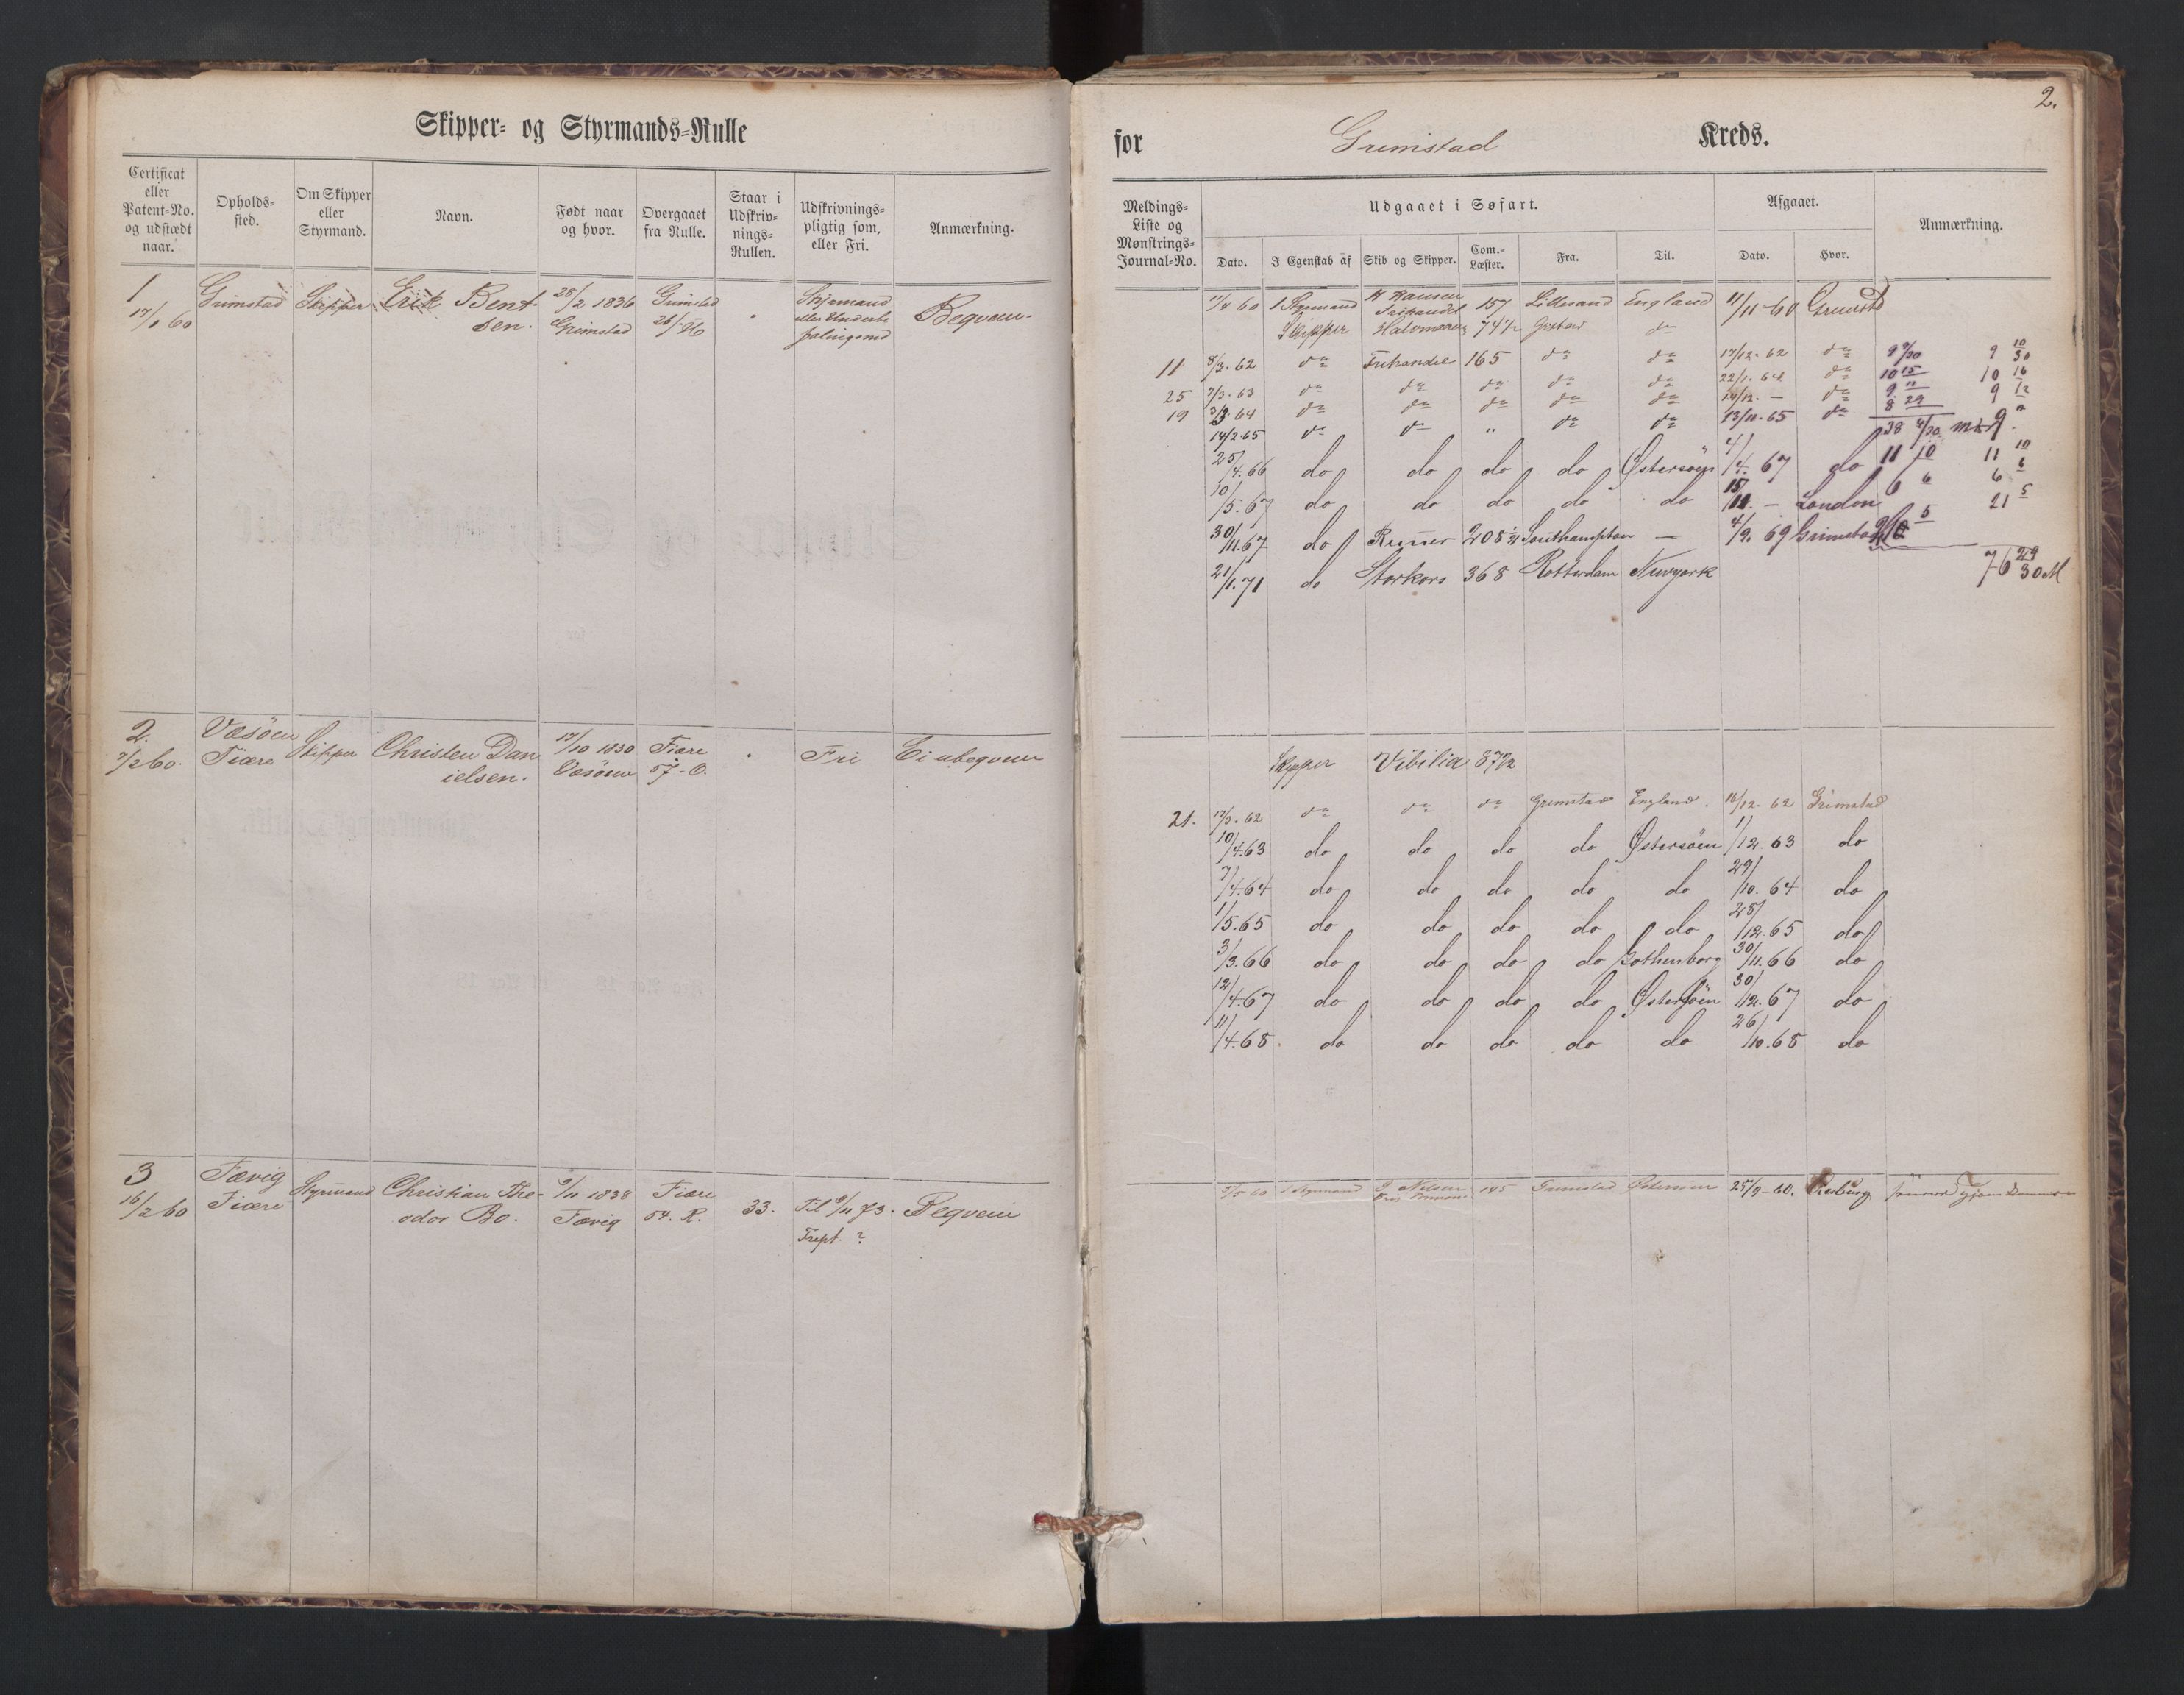 Skipper- og Styrmands-Rulle
Certificat eller Patent-No. og udstædt naar.
Opholds-sted.
Om Skipper eller Styrmand.
Navn.
Født naar og hvor.
Overgaaet fra Rulle.
Staar i Udskriv-nings-Rullen.
Udskrivnings-pligtig som, eller Fri.
Anmærkning.
1 Grimstad Skipper Erik Bent- 28/2 1836 Grimstad Styrmand Begvem.
17/1 60 sen. Grimstad 26/-Ø eller
2. Vesøen Skipper Christen Dan 17/10 1830 Fiære Fri Ei ubegvem
7/2 60. Fiære ielsen. Vesøen 57-O.
3 Fævig Styrmand Christian The- 9/11 1838 Fiære 33. Til 9/11 73. Begvem
16/2 60 Fiære odor Bo. Fævig 54. R.
?
2.
for Grimstad Kreds.
Meldings-Liste og Mønstrings-Journal-No.
Udgaaet i Søfart.
Dato.
I Egenskab af
Skib og Skipper.
Com.-Læster.
Fra.
Til.
Afgaaet.
Dato.
Hvor.
Anmærkning.
11/4 60 1 Styrmand H Hansen 157 Lillesand England 11/11-60 Grimstd
Frihandel
Skipper Halvmaanen 74 1/2 do
11 8/3. 62 do Frihandel 165 do do 17/12. 62 do 9 9/30 9 10/30
25 7/3. 63 do do do do do 22/1. 64 do 10 15 10 16
19 3/3. 64 do do do do do 14/12. — do 9 11 9 12
14/2. 65 do do " do do 13/11. 65 do 8 29 9
38
25/4. 66 do do do do Østersöen 4/4. 67 do 11 10 11 10
10/5. 67 do do do do do 15/11. — London 6 6 6 6
30/11. 67 do 208 Southampton — 4/9. 69 Grimstad 21 5
21/1. 71 do Storkors 368 Rotterdam Newyork 76 29/30 M
Skipper Vibilia 87 1/2
21. 17/3. 62 do do do Grimstad England. 16/12. 62 Grimstad
10/4. 63 do do do do Østersöen 1/12. 63 do
7/4. 64 do do do do do 29/10. 64 do
1/5. 65 do do do do do 28/12. 65 do
3/3. 66 do do do do Gothenborg 30/11. 66 do
12/4. 67 do do do do Østersöen 30/12. 67 do
11/4. 68. do do do do do 26/10. 68 do
7/5 60 1 Styrmand Nelsen 145 Grimstad Østersöen 25/9-60.